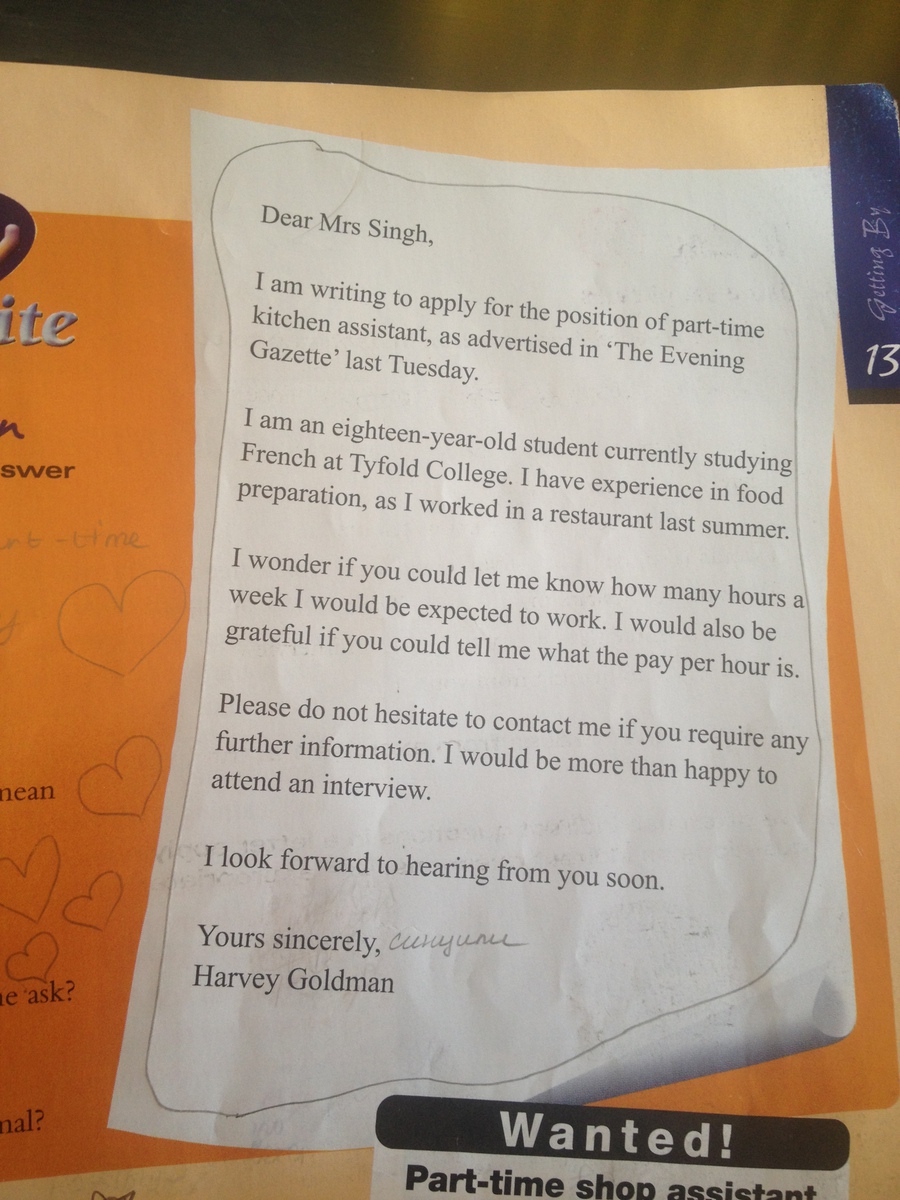 Dear Mrs Singh,
I am writing to apply for the position of part-time
kitchen assistant, as advertised in ‘The Evening
Gazette’ last Tuesday.
I am an eighteen-year-old student currently studying
French at Tyfold College. I have experience in food
preparation, as I worked in a restaurant last summer.
I wonder if you could let me know how many hours a
week I would be expected to work. I would also be
grateful if you could tell me what the pay per hour is.
Please do not hesitate to contact me if you require any
further information. I would be more than happy to
attend an interview.
I look forward to hearing from you soon.
Yours sincerely,
Harvey Goldman
Getting By
13
ite
n
swer
-time
mean
ask?
nal?
Wanted!
Part-time shop assistant